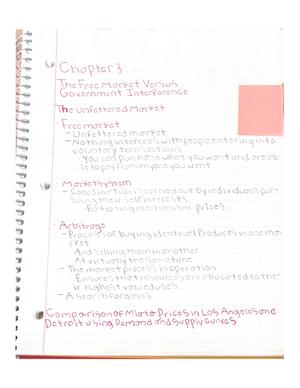 Chapter 3
The Free Market Versus
Government Interference
The Unfettered Market
· Free market
- Unfettered market
- Nothing interferes with people entering into
voluntary transactions
· You can purchase what you want and are ab-
le to pay from anyone you want
· Market system
- Coordination is carried out by individuals pur-
suing their self interests
· Rationing mechanism: prices
· Arbitrage
- Process of buying identical Products in one ma-
rket
· And selling them in another
· At virtually the same time
- The market process in operation
· Ensures that resources are allocated to the-
ir highest valued uses
- A search for gains
Comparison of Miata Prices in Los Angeles and
Detroit using Demand and Supply Curves